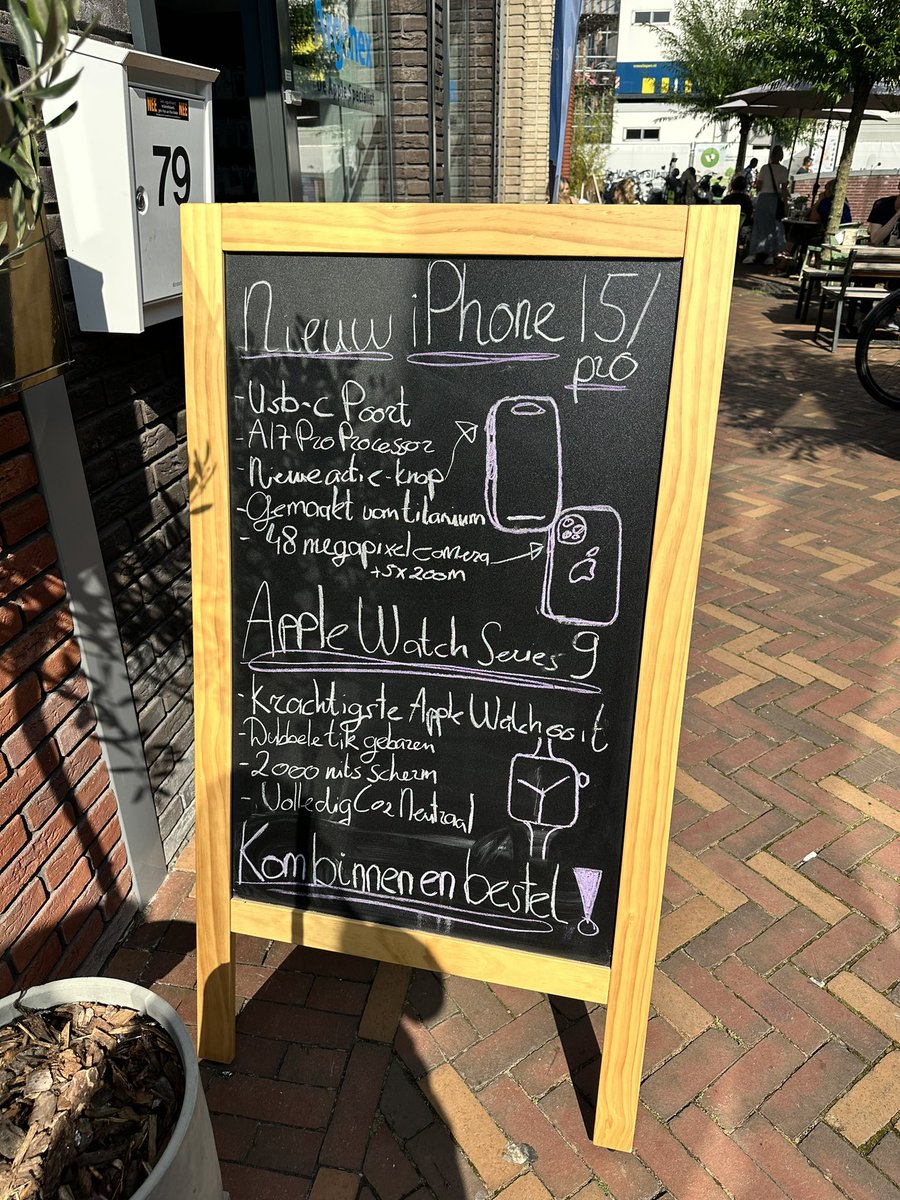 NEE
NEE
79
Nieuw iPhone 15/
pro
- Usb-c Poort
- A17 Pro Processor
- Nieuwe actie-knop
- Gemaakt van titanium
- 48 megapixel camera
+5x zoom
Apple Watch Series 9
- Krachtigste Apple Watch ooit
- Dubbele tik gebaren
- 2000 nits scherm
- Volledig Co2 Neutraal
Kom binnen en bestel!